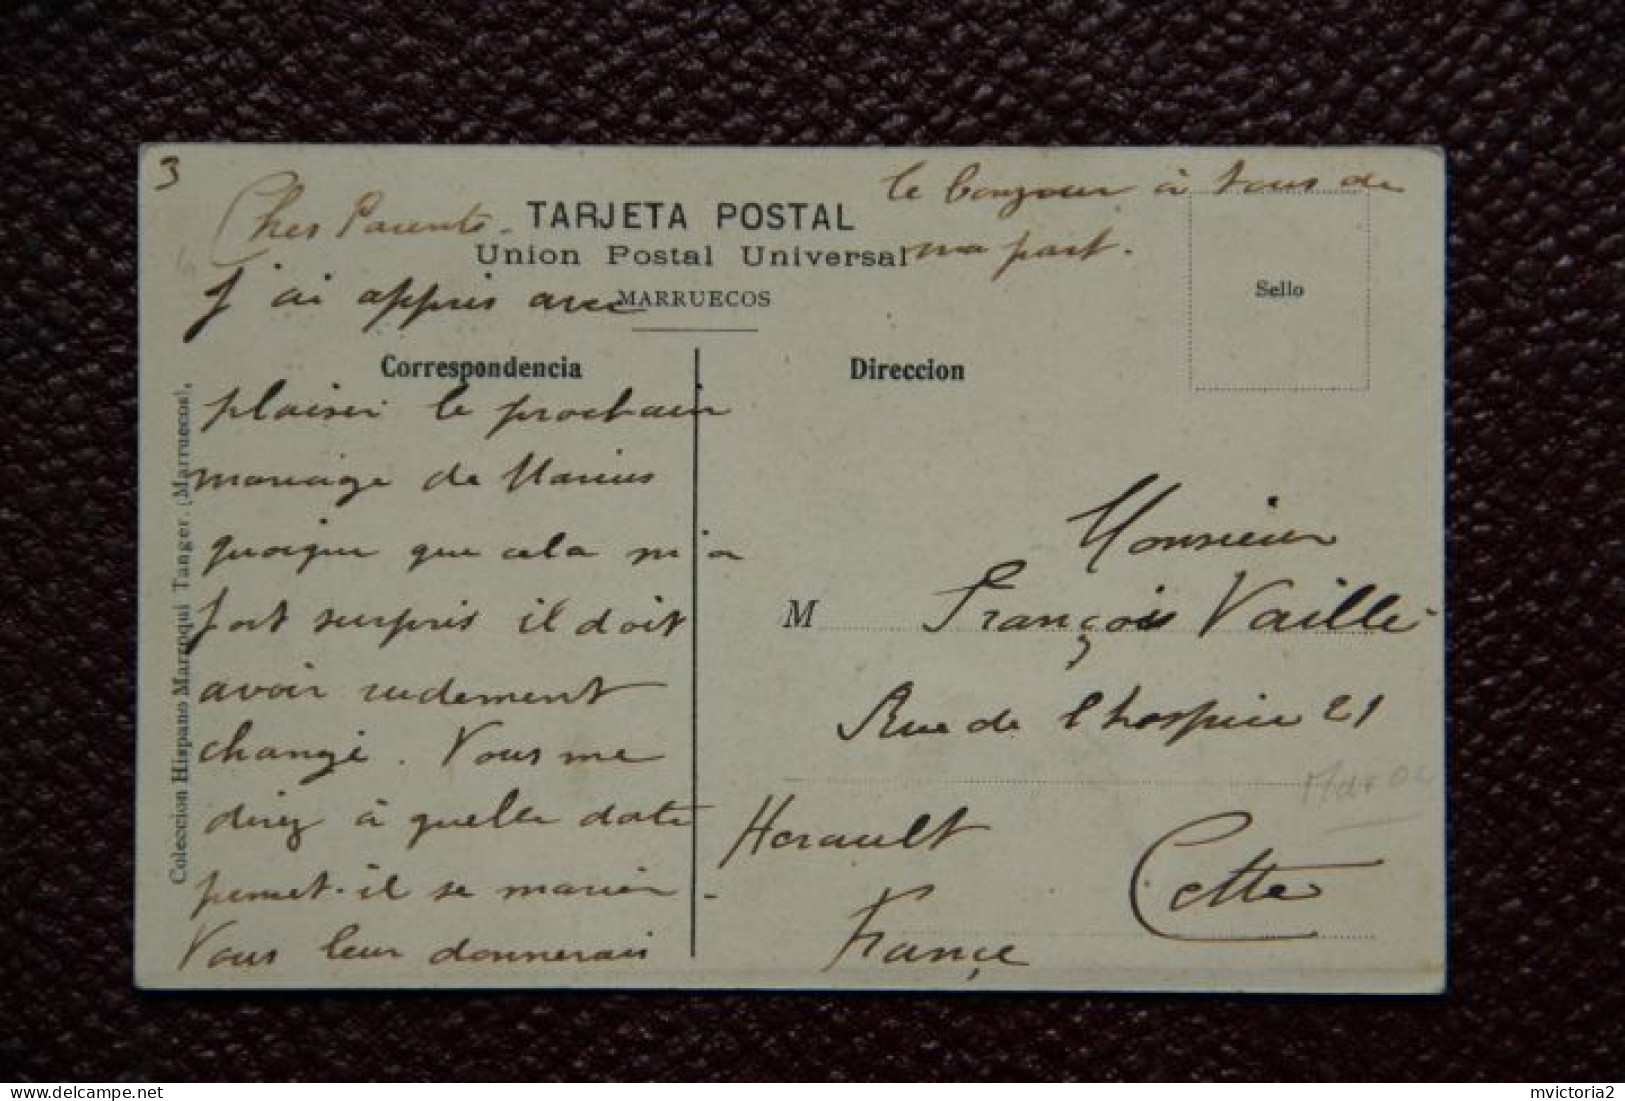 3
Chers Parents -
TARJETA POSTAL
Union Postal Universal
MARRUECOS
Correspondencia
Direccion
Sello
Coleccion Hispano Marroqui Tanger. (Marruecos).
J'ai appris avec
plaisir le prochain
mariage de Marius
quoique que cela m'a
fort surpris il doit
avoir rudement
changé. Vous me
direz à quelle date
pense t-il se marier -
Vous leur donnerais
le bonjour à tous de
ma part.
Monsieur
M François Vaille
Rue de l'hospice 21
Herault Cette
France
mvictoria2